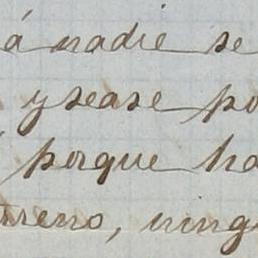 á nadie se
y sease po
porque ha
rreno, ning